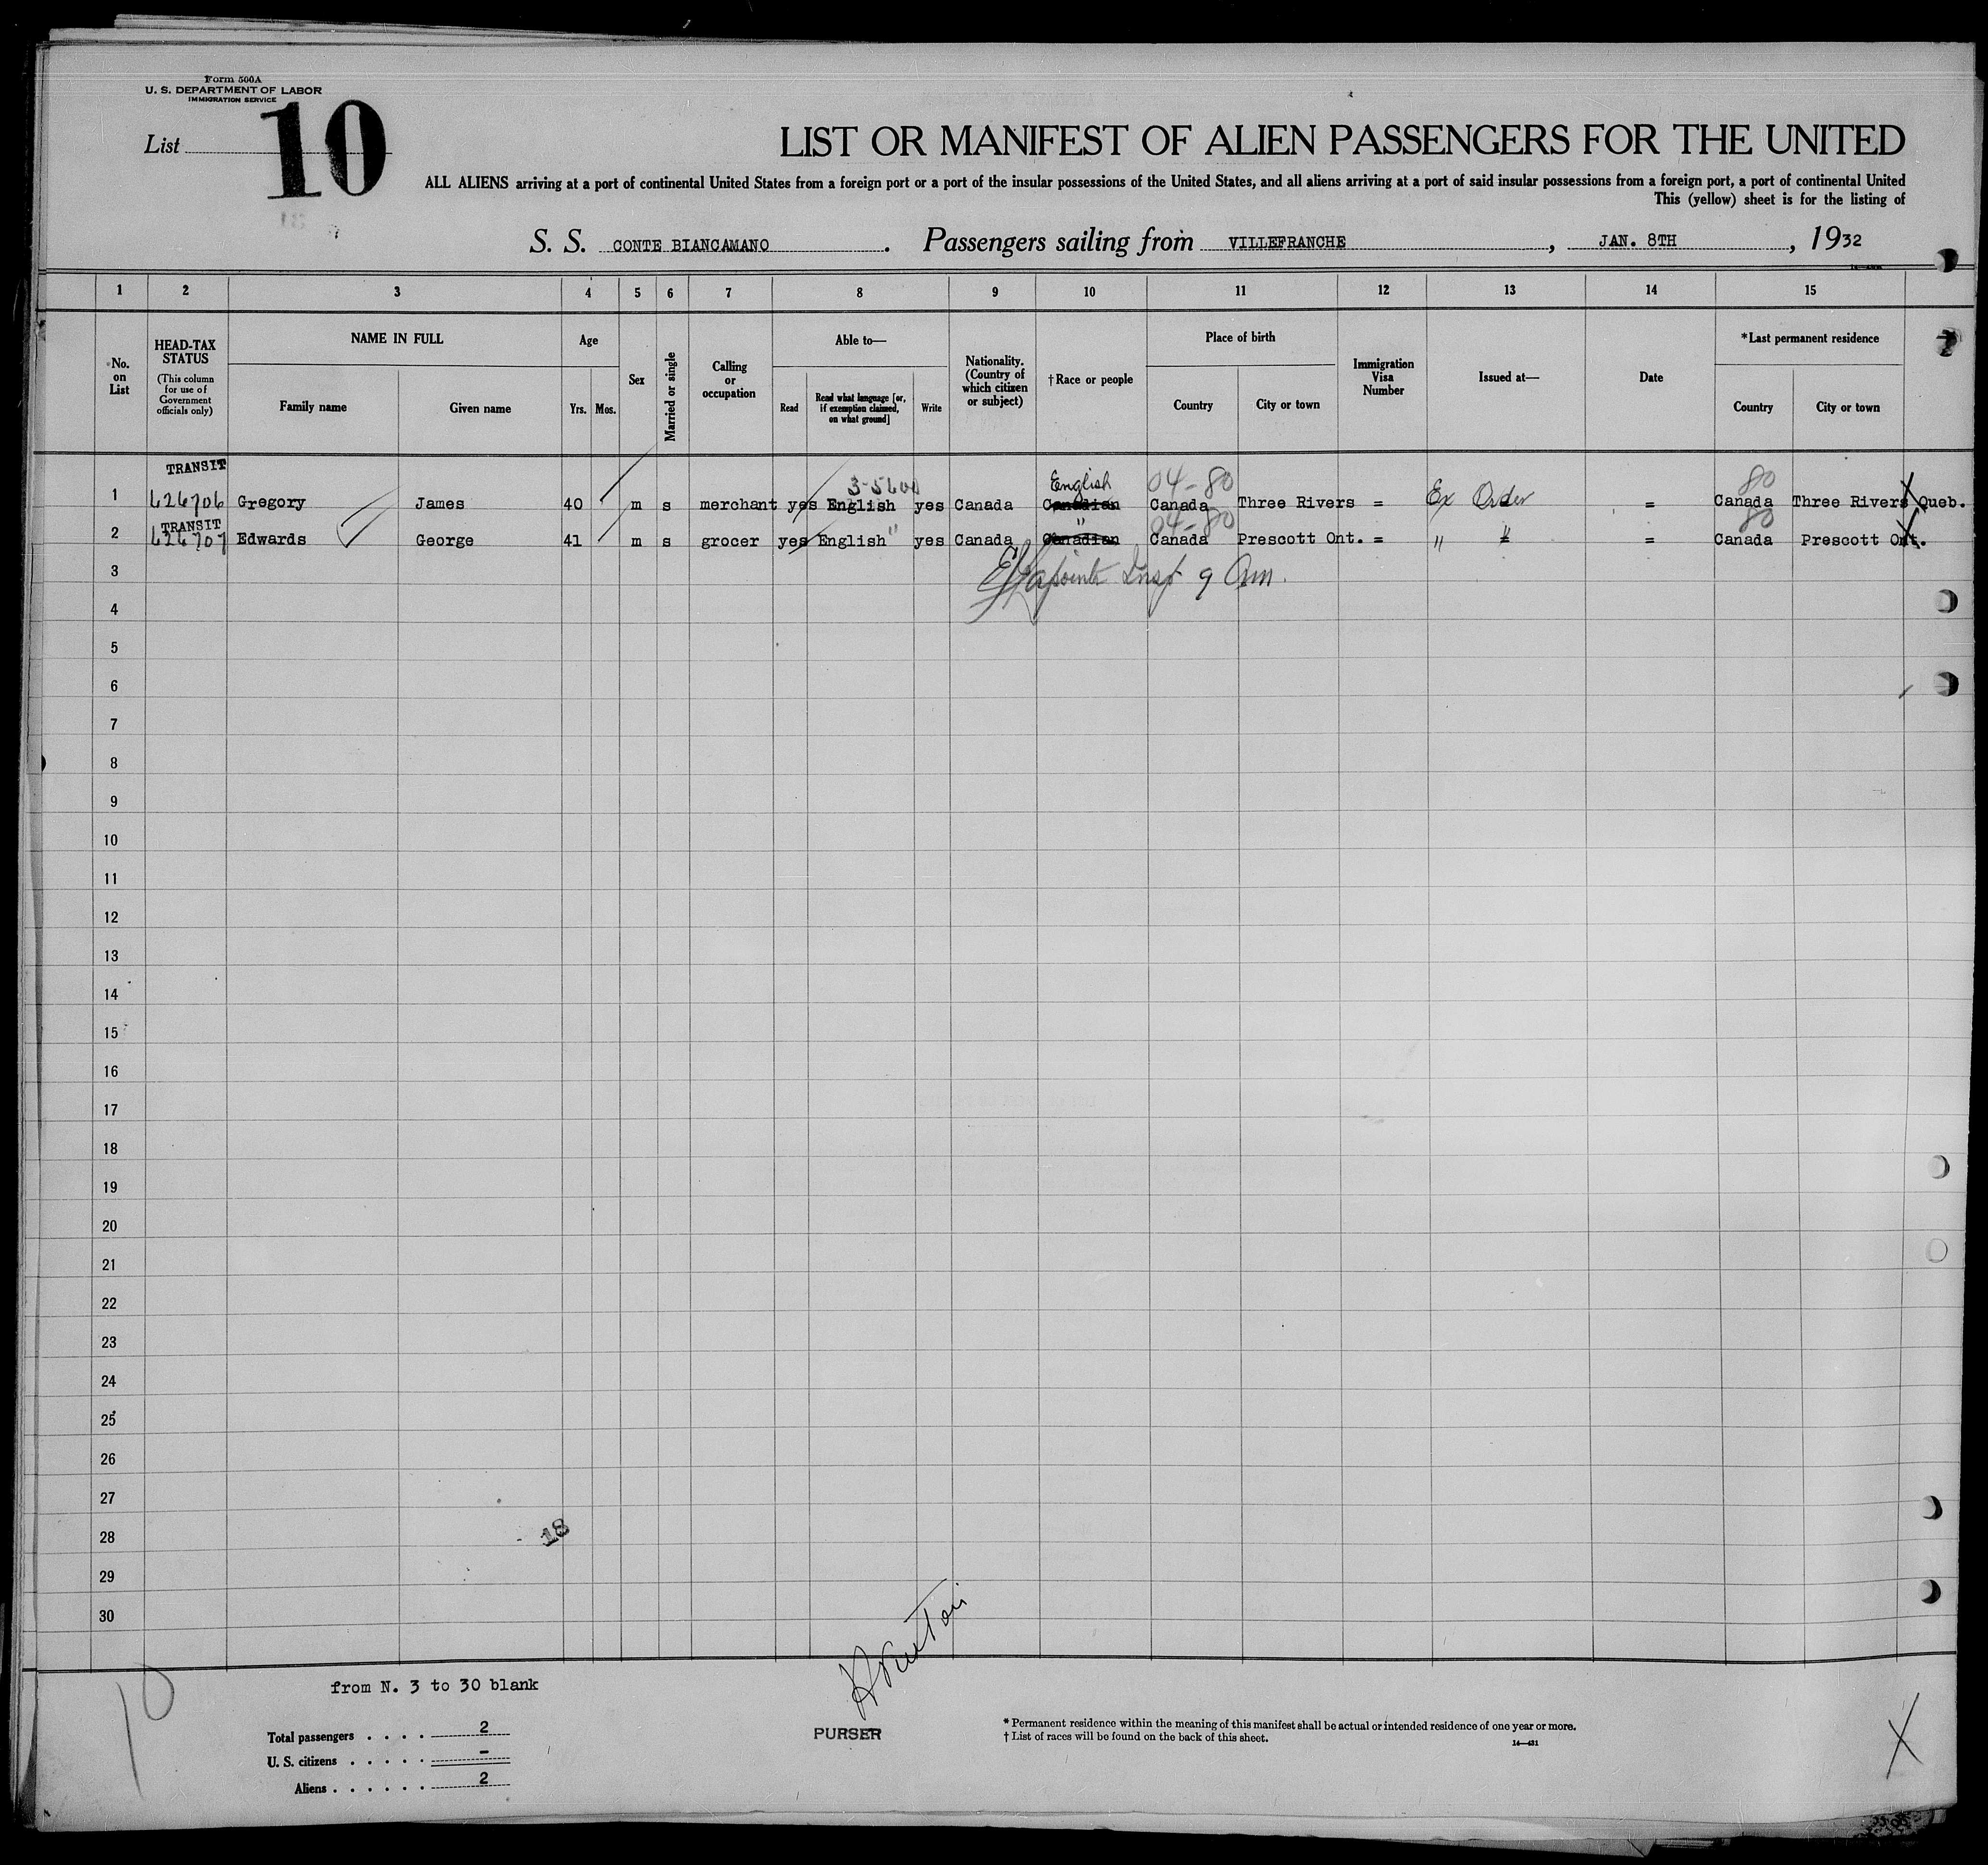 Form 500A
U. S. DEPARTMENT OF LABOR
IMMIGRATION SERVICE
List 10
LIST OR MANIFEST OF ALIEN PASSENGERS FOR THE UNITED
ALL ALIENS arriving at a port of continental United States from a foreign port or a port of the insular possessions of the United States, and all aliens arriving at a port of said insular possessions from a foreign port, a port of continental United
This (yellow) sheet is for the listing of
S. S. CONTE BIANCAMANO. Passengers sailing from VILLEFRANCHE, JAN. 8TH, 1932
1 2 3 4 5 6 7 8 9 10 11 12 13 14 15
No. on List
HEAD-TAX STATUS
(This column for use of Government officials only)
NAME IN FULL
Family name
Given name
Age
Yrs. Mos.
Sex
Married or single
Calling or occupation
Able to—
Read
Read what language [or, if exemption claimed, on what ground]
Write
Nationality. (Country of which citizen or subject)
†Race or people
Place of birth
Country
City or town
Immigration Visa Number
Issued at—
Date
*Last permanent residence
Country
City or town
TRANSIT 3-5600 English 04-80 80
1 626706 Gregory James 40 m s merchant yes English yes Canada Canadian Canada Three Rivers = Ex Order = Canada Three Rivers Queb.
TRANSIT " 04-80 80
2 626707 Edwards George 41 m s grocer yes English " yes Canada Canadian Canada Prescott Ont. = " " = Canada Prescott Ont.
3 Insp 9 Am.
4
5
6
7
8
9
10
11
12
13
14
15
16
17
18
19
20
21
22
23
24
25
26
27
28
29
30
18
10
from N. 3 to 30 blank
Total passengers . . . . 2
U. S. citizens . . . . . –
Aliens . . . . . . 2
PURSER
* Permanent residence within the meaning of this manifest shall be actual or intended residence of one year or more.
† List of races will be found on the back of this sheet.
14—431
X